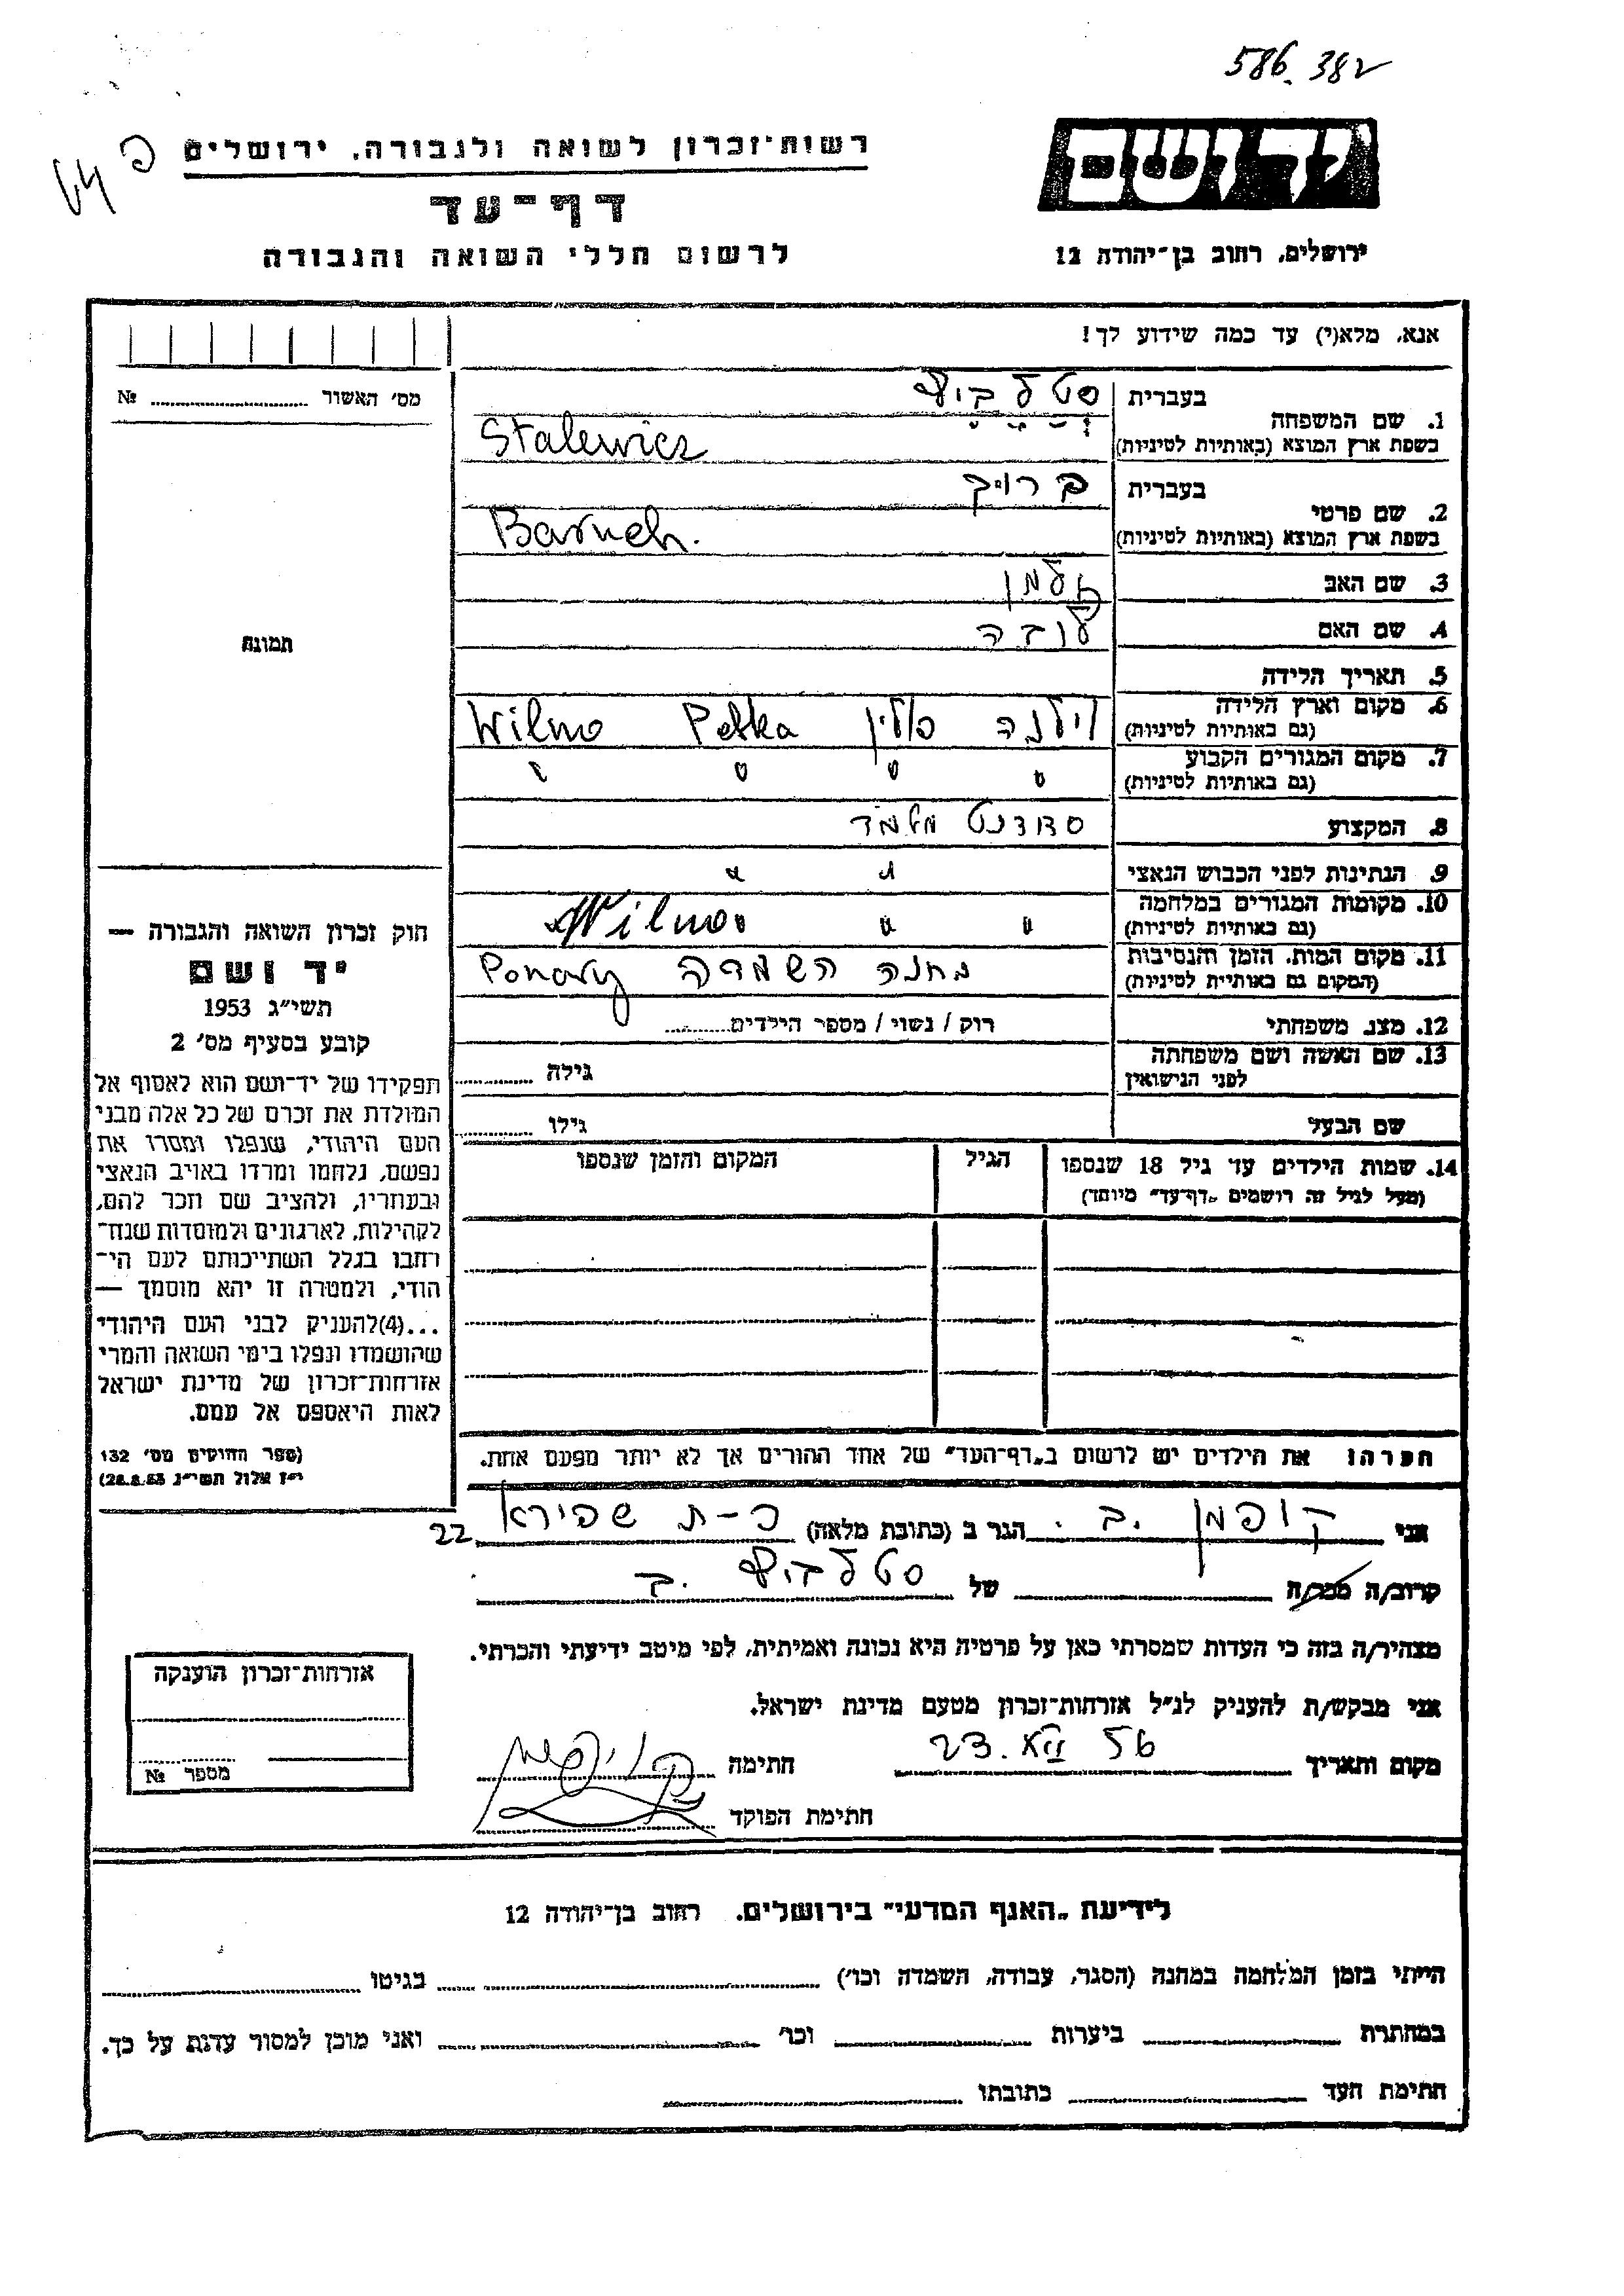 586.382
רשות־זכרון לשואה ולגבורה, ירושלים
דף־עד
לרשום חללי השואה והגבורה
יד ושם
ירושלים, רחוב בן־יהודה 12
אנא, מלא(י) עד כמה שידוע לך!
מס׳ האשור № 
1. שם המשפחה בעברית סטלביץ
בשפת ארץ המוצא (באותיות לטיניות) Stalewicz
2. שם פרטי בעברית ברוך
בשפת ארץ המוצא (באותיות לטיניות) Baruch.
3. שם האב זלמן
4. שם האם
5. תאריך הלידה
6. מקום וארץ הלידה (גם באותיות לטיניות) וילנה פולין Wilno
7. מקום המגורים הקבוע (גם באותיות לטיניות) " " " "
8. המקצוע סטודנט
9. הנתינות לפני הכבוש הנאצי " "
10. מקומות המגורים במלחמה (גם באותיות לטיניות) " " Wilno
11. מקום המות, הזמן והנסיבות (המקום גם באותיות לטיניות) מחנה השמדה Ponary
12. מצב משפחתי רוק / נשוי / מספר הילדים
13. שם האשה ושם משפחתה לפני הנישואין גילה
שם הבעל גילו
14. שמות הילדים עד גיל 18 שנספו
(מעל לגיל זה רושמים „דף־עד” מיוחד)
הגיל
המקום והזמן שנספו
תמונה
חוק זכרון השואה והגבורה —
יד ושם
תשי״ג 1953
קובע בסעיף מס׳ 2
תפקידו של יד־ושם הוא לאסוף אל
המולדת את זכרם של כל אלה מבני
העם היהודי, שנפלו ומסרו את
נפשם, נלחמו ומרדו באויב הנאצי
ובעוזריו, ולהציב שם וזכר להם,
לקהילות, לארגונים ולמוסדות שנח־
רבו בגלל השתייכותם לעם הי־
הודי, ולמטרה זו יהא מוסמך —
...(4)להעניק לבני העם היהודי
שהושמדו ונפלו בימי השואה והמרי
אזרחות־זכרון של מדינת ישראל
לאות היאספם אל עמם.
(ספר החוקים מס׳ 132
י״ז אלול תשי״ג 28.8.53)
הערה: את הילדים יש לרשום ב„דף־העד” של אחד ההורים אך לא יותר מפעם אחת.
אני קופמן ב. הגר ב (כתובת מלאה) שפירא 22
קרוב/ה מכר/ה של סטלביץ ב
מצהיר/ה בזה כי העדות שמסרתי כאן על פרטיה היא נכונה ואמיתית, לפי מיטב ידיעתי והכרתי.
אני מבקש/ת להעניק לנ״ל אזרחות־זכרון מטעם מדינת ישראל.
מקום ותאריך 23. 56 חתימה
חתימת הפוקד
אזרחות־זכרון הוענקה
מספר №
לידיעת „האגף המדעי” בירושלים. רחוב בן־יהודה 12
הייתי בזמן המלחמה במחנה (הסגר, עבודה, השמדה וכו׳) בגיטו
במחתרת ביערות וכו׳ ואני מוכן למסור עדות על כך.
חתימת העד כתובתו